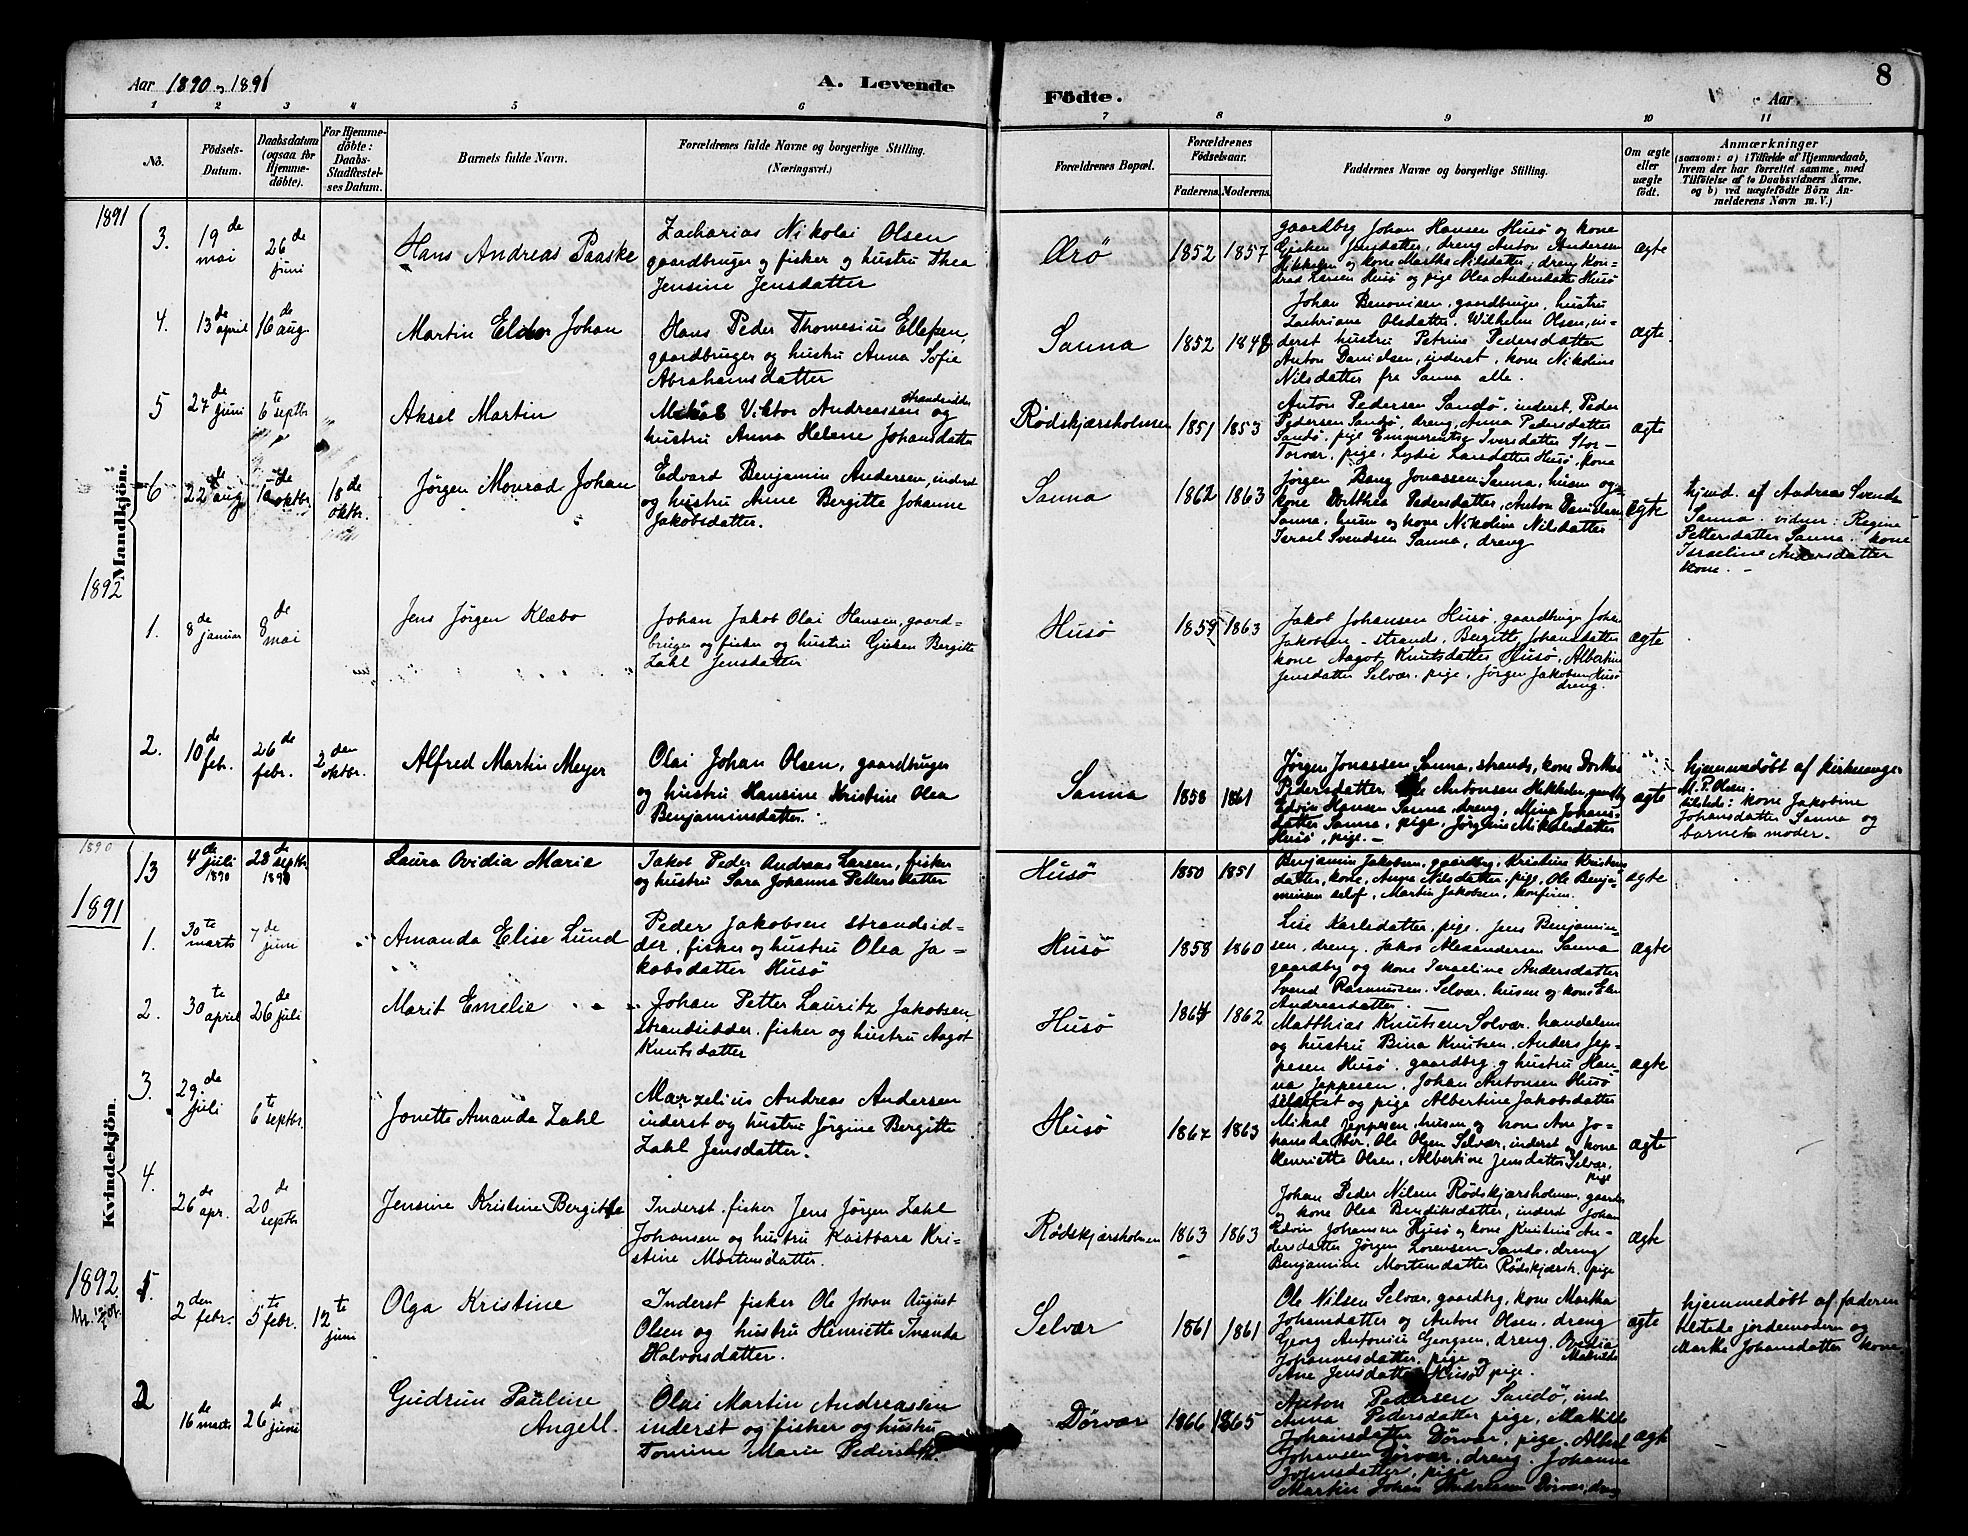 Aar 1890 og 1891
A. Levende
Födte.
Aar
8
1 2 3 4 5 6 7 8 9 10 11
No.
Födsels-Datum.
Daabsdatum (ogsaa for Hjemmedöbte).
For Hjemmedöbte: Daabs-Stadfæstelses Datum.
Barnets fulde Navn.
Forældrenes fulde Navne og borgerlige Stilling.
(Næringsvei.)
Forældrenes Bopæl.
Forældrenes Födselsaar.
Faderens. Moderens.
Faddernes Navne og borgerlige Stilling.
Om ægte eller uægte födt.
Anmærkninger
(saasom: a) i Tilfælde af Hjemmedaab,
hvem der har forrettet samme, med
Tilföielse af to Daabsvidners Navne,
og b) ved uægtefödte Börn An-
melderens Navn m. V.)
Mandkjön.
1891
3.
19de mai
26de juni
Hans Andreas Paaske
Zacharias Nikolai Olsen
gaardbruger og fisker og hustru Thea
Jensine Jensdatter
Ærö
1852 1857
gaardbrg Johan Hansen Husö og kone
Gjeken Jensdatter, dreng Anton Andersen
og kone Martha Nilsdatter, dreng Kon-
rad Larsen Husö og pige Olea Andersdatter Husö
ægte
4.
13de april
16de aug
Martin Johan
Hans Peder Thomesius Ellefsen,
gaardbruger og hustru Anna Sofie
Abrahamsdatter
Sanna
1852
Johan Benonisen, gaardbruger, hustru
Zachriane Olsdatter. Wilhelm Olsen, in-
derst hustru Petrine Pedersdatter
Anton Danielsen, inderst, kone Nikoline
Nilsdatter fra Sanna alle.
ægte
5
27de juni
6te septbr
Aksel Martin
Mikal Viktor Andreassen strandsidder og
hustru Anna Helene Johansdatter
Rödskjærsholmen
1851 1853
Anton Pedersen Sandö, inderst, Peder
Pedersen Sandö, dreng, Anna Pedersdatter
Sandö, pige Emmerentse Iversdatter Stor-
Torvær, pige, Lydie Larsdatter Husö, kone
ægte
6
22de aug
oktbr.
18de oktbr.
Jörgen Monrad Johan
Edvard Benjamin Andersen, inderst
og hustru Anne Bergitte Johanne
Jakobsdatter.
Sanna
1862 1863
Jörgen Bang Jonassen Sanna, husm og
kone Dorthea Pedersdatter, Anton Danielsen
Sanna, husm og kone Nikoline Nilsdatter
Israel Svendsen Sanna, dreng
ægte
hjemd. af Andreas Svends
Sanna. vidner: Regine
Pettersdatter Sanna. kone
Israeline Andersdatter
kone. -
1892
1.
8de januar
8de mai
Jens Jörgen Klæbo
Johan Jakob Olai Hansen, gaard-
bruger og fisker og hustru Gieken Bergitte
Zahl Jensdatter
Husö
1859 1863
Jakob Johansen Husö, gaardbruger Johan
Jakobsen - strands, Bergitte Johansdatter
kone Aagot Knutsdatter Husö, Albertine
Jensdatter Selvær, pige, Jörgen Jakobsen Husö
dreng.
ægte
2.
10de febr.
26de febr.
2den oktbr.
Alfred Martin Meyer
Olai Johan Olsen, gaardbruger
og hustru Hansine Kristine Olea
Benjaminsdatter.
Sanna
1858 1861
Jörgen Jonassen Sanna, strands, kone Dorthea
Pedersdatter, Antonsen
Edvin Hansen Sanna, dreng, Mina Johans-
datter Sanna, pige, Jörgine Mikalsdatter
Husö, pige. -
ægte
hjemmedöbt af kirkesanger
M. P. Olsen.
tilstede: kone Jakobine
Johansdatter Sanna og
barnets moder.
Kvindekjön.
1890
13
4de juli 1890
28de septbr 1890
Laura Ovidia Marie
Jakob Peder Andreas Larsen, fisker
og hustru Sara Johanna Pettersdatter
Husö
1850 1851
Benjamin Jakobsen, gaardbrg, Kristine Kristens
datter, kone, Anna Nilsdatter, pige, Ole Benja-
minsen selvf, Martin Jakobsen, konfirm.
ægte
1891
1.
30te marts
7de juni
Amanda Elise Lund
Peder Jakobsen strandsid-
der, fisker og hustru Olea Ja-
kobsdatter Husö
Husö
1858 1860
Lise Karlsdatter, pige. Jens Benjamin-
sen, dreng. Jakob Alexandersen Sanna
gaardbrg og kone Israeline Andersdatter
Svend Rasmussen, Selvær, husm og kone
Andreasdatter. -
ægte
2.
30te april
26de juli
Marit Emelie
Johan Petter Lauritz Jakobsen
strandsidder. fisker og hustru Aagot
Knutsdatter
Husö
1864 1862
Matthias Knutsen Selvær, handelsm
og hustru Bina Knutsen, Anders Jep-
pesen Husö, gaardbrg. og hustru Han-
na Jeppesen, Johan Antonsen Husö
og pige Albertine Jakobsdatter
ægte
3.
29de juli
6te septbr.
Jonette Amanda Zahl
Marzelius Andreas Andersen
inderst og hustru Jörgine Bergitte
Zahl Jensdatter.
Husö
1863
Mikal Jeppesen, husm og kone Ane Jo-
hansdatter, Ole Olsen Selvær, inderst og kone
Henriette Olsen, Albertine Jensdatter Selvær,
pige
ægte
4.
26de apr.
20de septbr
Jensine Kristine Bergitte
Inderst. fisker Jens Jörgen Zahl
Johansen og hustru Kri-
stine Mortensdatter.
Rödskjærsholmen
1863 1863
Johan Peder Nilsen Rödskjærsholmen, gaardbr
og kone Olea Bendiksdatter, inderst Johan
Edvin Johansen Husö og kone Kristine An-
dersdatter Jörgen Lorensen Sandö. dreng
Benjamine Mortensdatter Rödskjærsh. pige
ægte
1892.
1.
2den febr.
5te febr.
12te juni
Olga Kristine
Inderst fisker Ole Johan August
Olsen og hustru Henriette Inanda
Halvorsdatter.
Selvær
1861 1861
Ole Nilsen Selvær, gaardbrg, kone Martha
Johansdatter og Anton Olsen. dreng
Georg Antonius Georgsen, dreng, Ovidia Mathilde
Johannesdatter. pige og
Ane Jensdatter Husö pige.
ægte
hjemmedöbt af faderen
tilstede jordemoderen og
Martha Johansdatter kone
2
16de marts
26de juni
Gudrun Pauline
Angell.
Olai Martin Andreassen
inderst og fisker og hustru
Tomine Marie Pedersdtr.
Dörvær
1866 1865
Anton Pedersen Sandö, ind.
Anna Pedersdatter pige, Mathilde
Johansdatter Dörvær, pige. Albert
Johansen Dörvær, dreng. Johanna
Johnsdatter, pige
Martin Johan Andreassen Dörvær, dreng
ægte